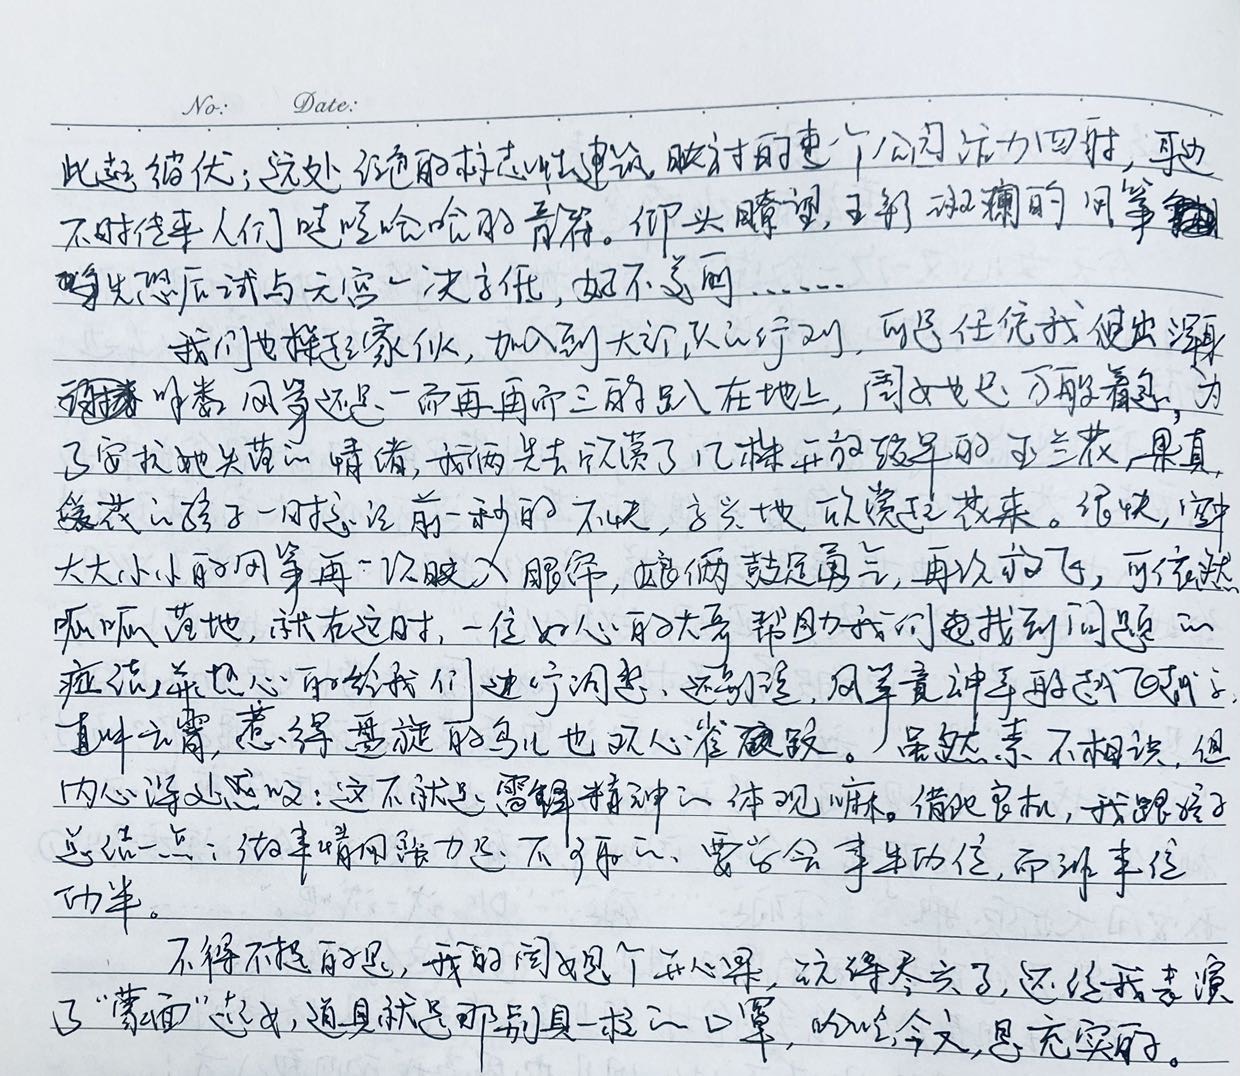 No: Date:
此起彼伏；远处绿色的标志性建筑，映衬的更个公园活力四射，耳边
不时传来人们嘻嘻哈哈的音符。仰头瞭望，五彩斑斓的风筝
争先恐后试与天宫一决高低，好不美丽……
我们也操起家伙，加入到大部队的行列，可是任凭我使出浑身
解数风筝还是一而再再而三的趴在地上，闺女也是万般着急，为
了安抚她失落的情绪，我俩先去欣赏了几株开放较早的玉兰花，果真，
爱花的孩子一时忘记前一秒的不快，高兴地欣赏起花来。很快，空中
大大小小的风筝再一次映入眼帘，娘俩鼓足勇气，再次放飞，可依然
呱呱落地，就在这时，一位好心的大哥帮助我们找到问题的
症结，并热心的给我们进行调整、还别说，风筝竟神奇般越飞越高，
直冲云霄，惹得盘旋的鸟儿也欢心雀跃。虽然素不相识，但
内心深处感叹：这不就是雷锋精神的体现嘛。借此良机，我跟孩子
总结一点：做事情用强力是不可取的、要学会事半功倍，而非事倍
功半。
不得不提的是，我的闺女是个开心果，玩得尽兴了，还给我表演
了“蒙面”超女，道具就是那别具一格的口罩，哈哈，今天，是充实的。